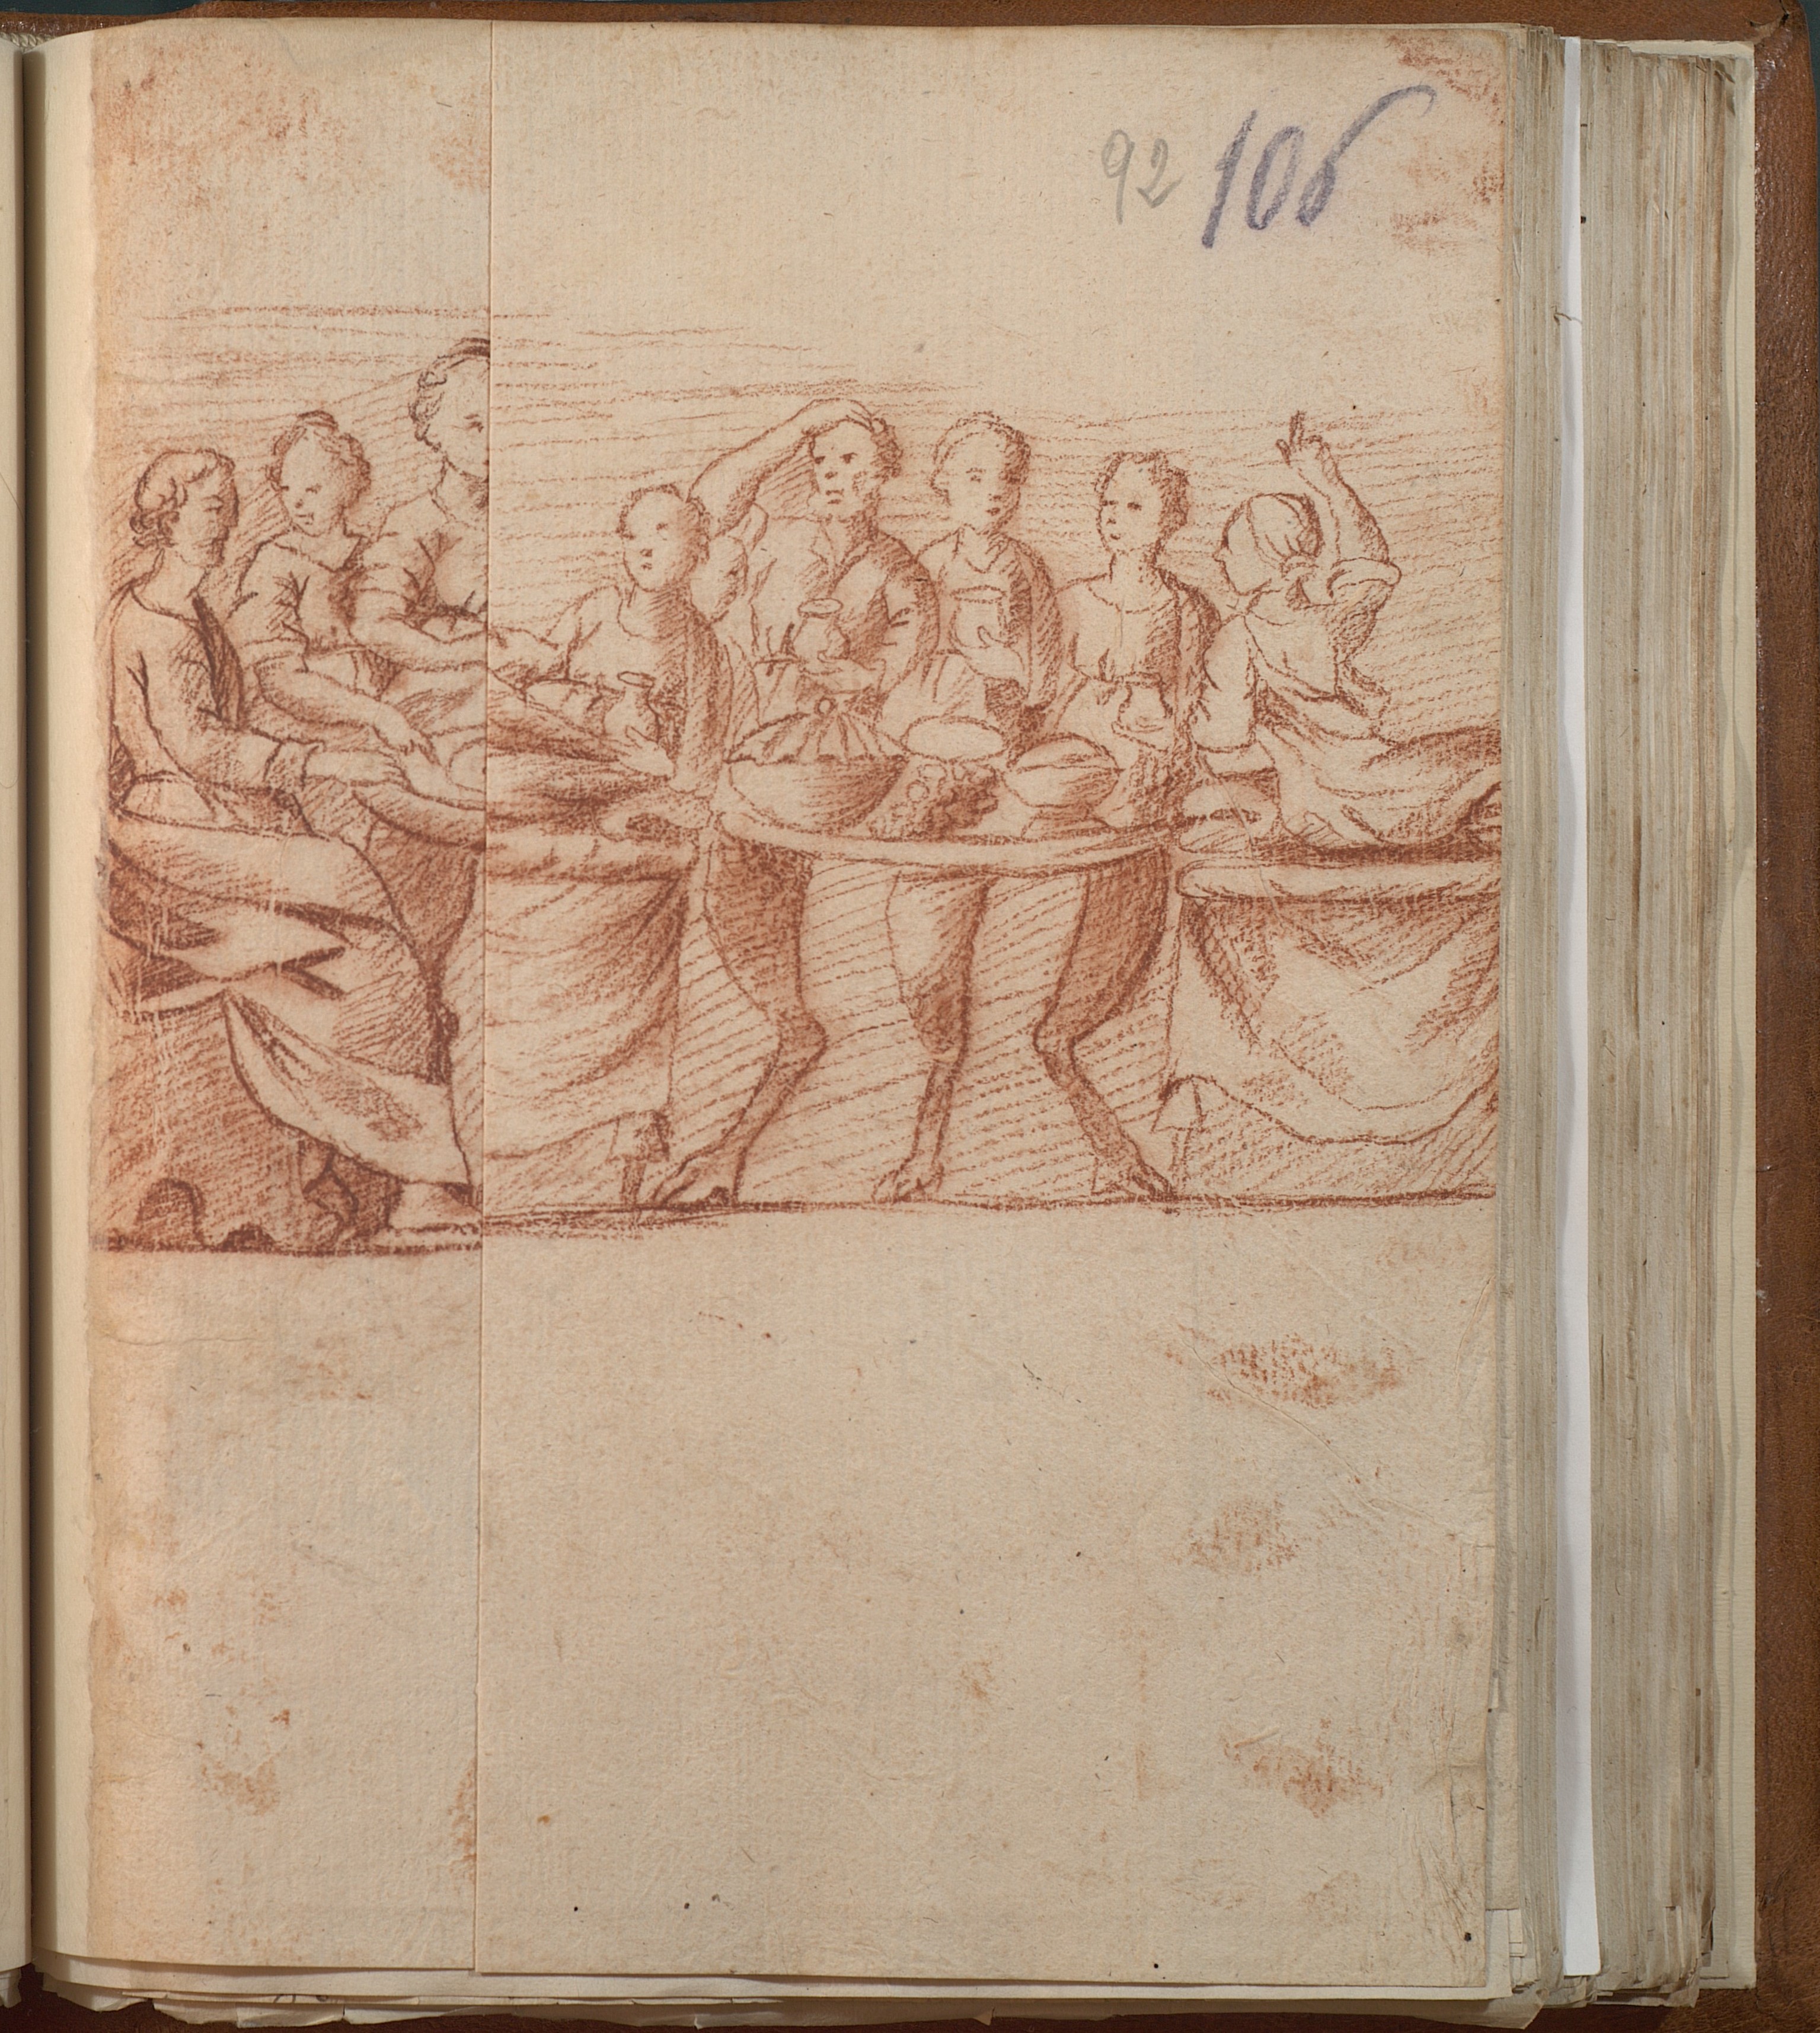 92 106